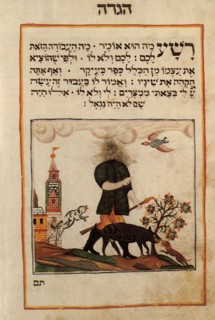 הגדה
רשע מה הוא אומר · מה העבודה הזאת
לכם : לכם ולא לו · ולפי שהוציא
את עצמו מן הכלל כפר בעיקר · ואף אתה
הקהה את שיניו · ואמור לו בעבור זה עשה
יי לי בצאתי ממצרים : לי ולא לו · אילו היה
שם לא היה נגאל :
תם